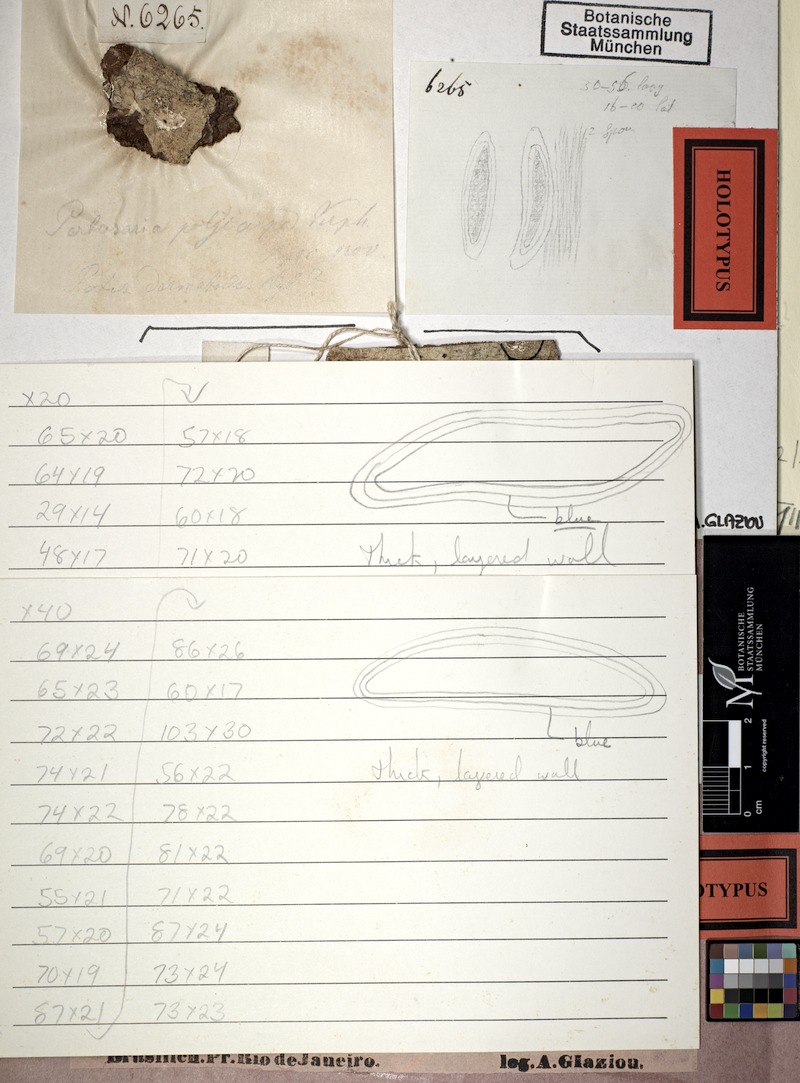 N. 6265.
Botanische
Staatssammlung
München
6265
50-56 long
16-20 lat
HOLOTYPUS
nov.
x20
65x20 57x18
64x19 72x20
29x14 60x18
48x17 71x20
blue
thick, layered wall
.GLAZIOU
x40
69x24 86x26
65x23 60x17
72x22 103x30
74x21 56x22
74x22 78x22
69x20 81x22
55x21 71x22
57x20 87x24
70x19 73x24
87x21 73x23
blue
thick, layered wall
BOTANISCHE
STAATSSAMMLUNG
MÜNCHEN
copyright reserved
0 1 2
cm
OTYPUS
Brasilien.Pr.Rio de Janeiro.
leg.A.Glaziou.